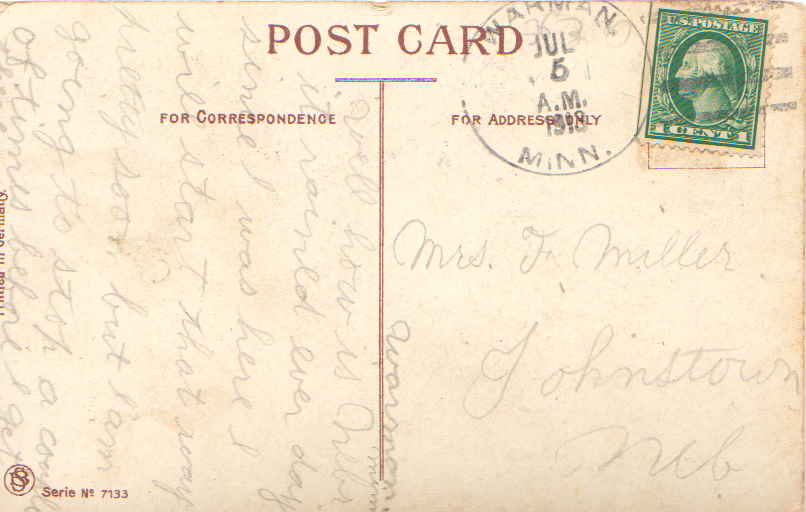 POST CARD
FOR CORRESPONDENCE
FOR ADDRESS ONLY
WARMAN,
JUL
5
A.M.
1913
MINN.
U.S. POSTAGE
1 CENT 1
Mrs. F. Miller
Johnstown
Neb
Warman
Minn
Well how is Nebr
it rained ever day
since I was here I
will start that way
pretty soon, but I am
going to stop a coupl
of times before I get
Printed in Germany.
Serie Nº 7133